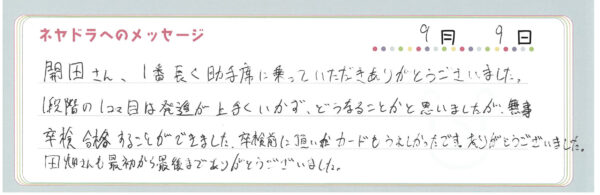 ネヤドラへのメッセージ
9月 9日
開田さん、1番長く助手席に乗っていただきありがとうございました。
1段階の1コマ目は発進が上手くいかず、どうなることかと思いましたが、無事
卒検合格することができました。卒検前に頂いたカードもうれしかったです。ありがとうございました。
田畑さんも最初から最後までありがとうございました。